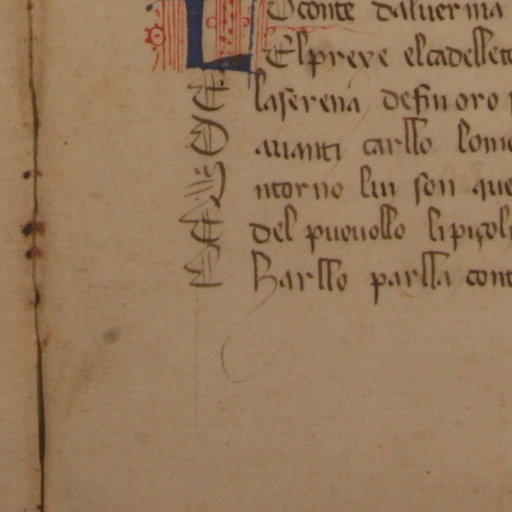 Oconte daluerma
El preue elcadellet
E laserena defin oro
O auanti carllo lom
ntorno lui son que
E del pueuollo lipiçoli
Karllo parlla cont